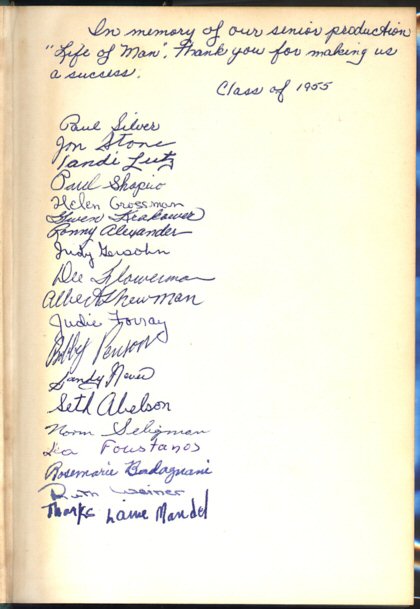 In memory of our senior production
"Life of Man". Thank you for making us
a success.
Class of 1955
Paul Silver
Jon Stone
Landi Lutz
Paul Shapiro
Helen Grossman
Gwen
Ronny Alexander
Judy Gersohn
Dee Flowerman
Albert Shewman
Judie Forray
Bobby
Sandy
Seth Abelson
Norm Seligman
Lea Foustanos
Rosemarie Badagnani
Ruth Weiner
Thanks Laine Mandel